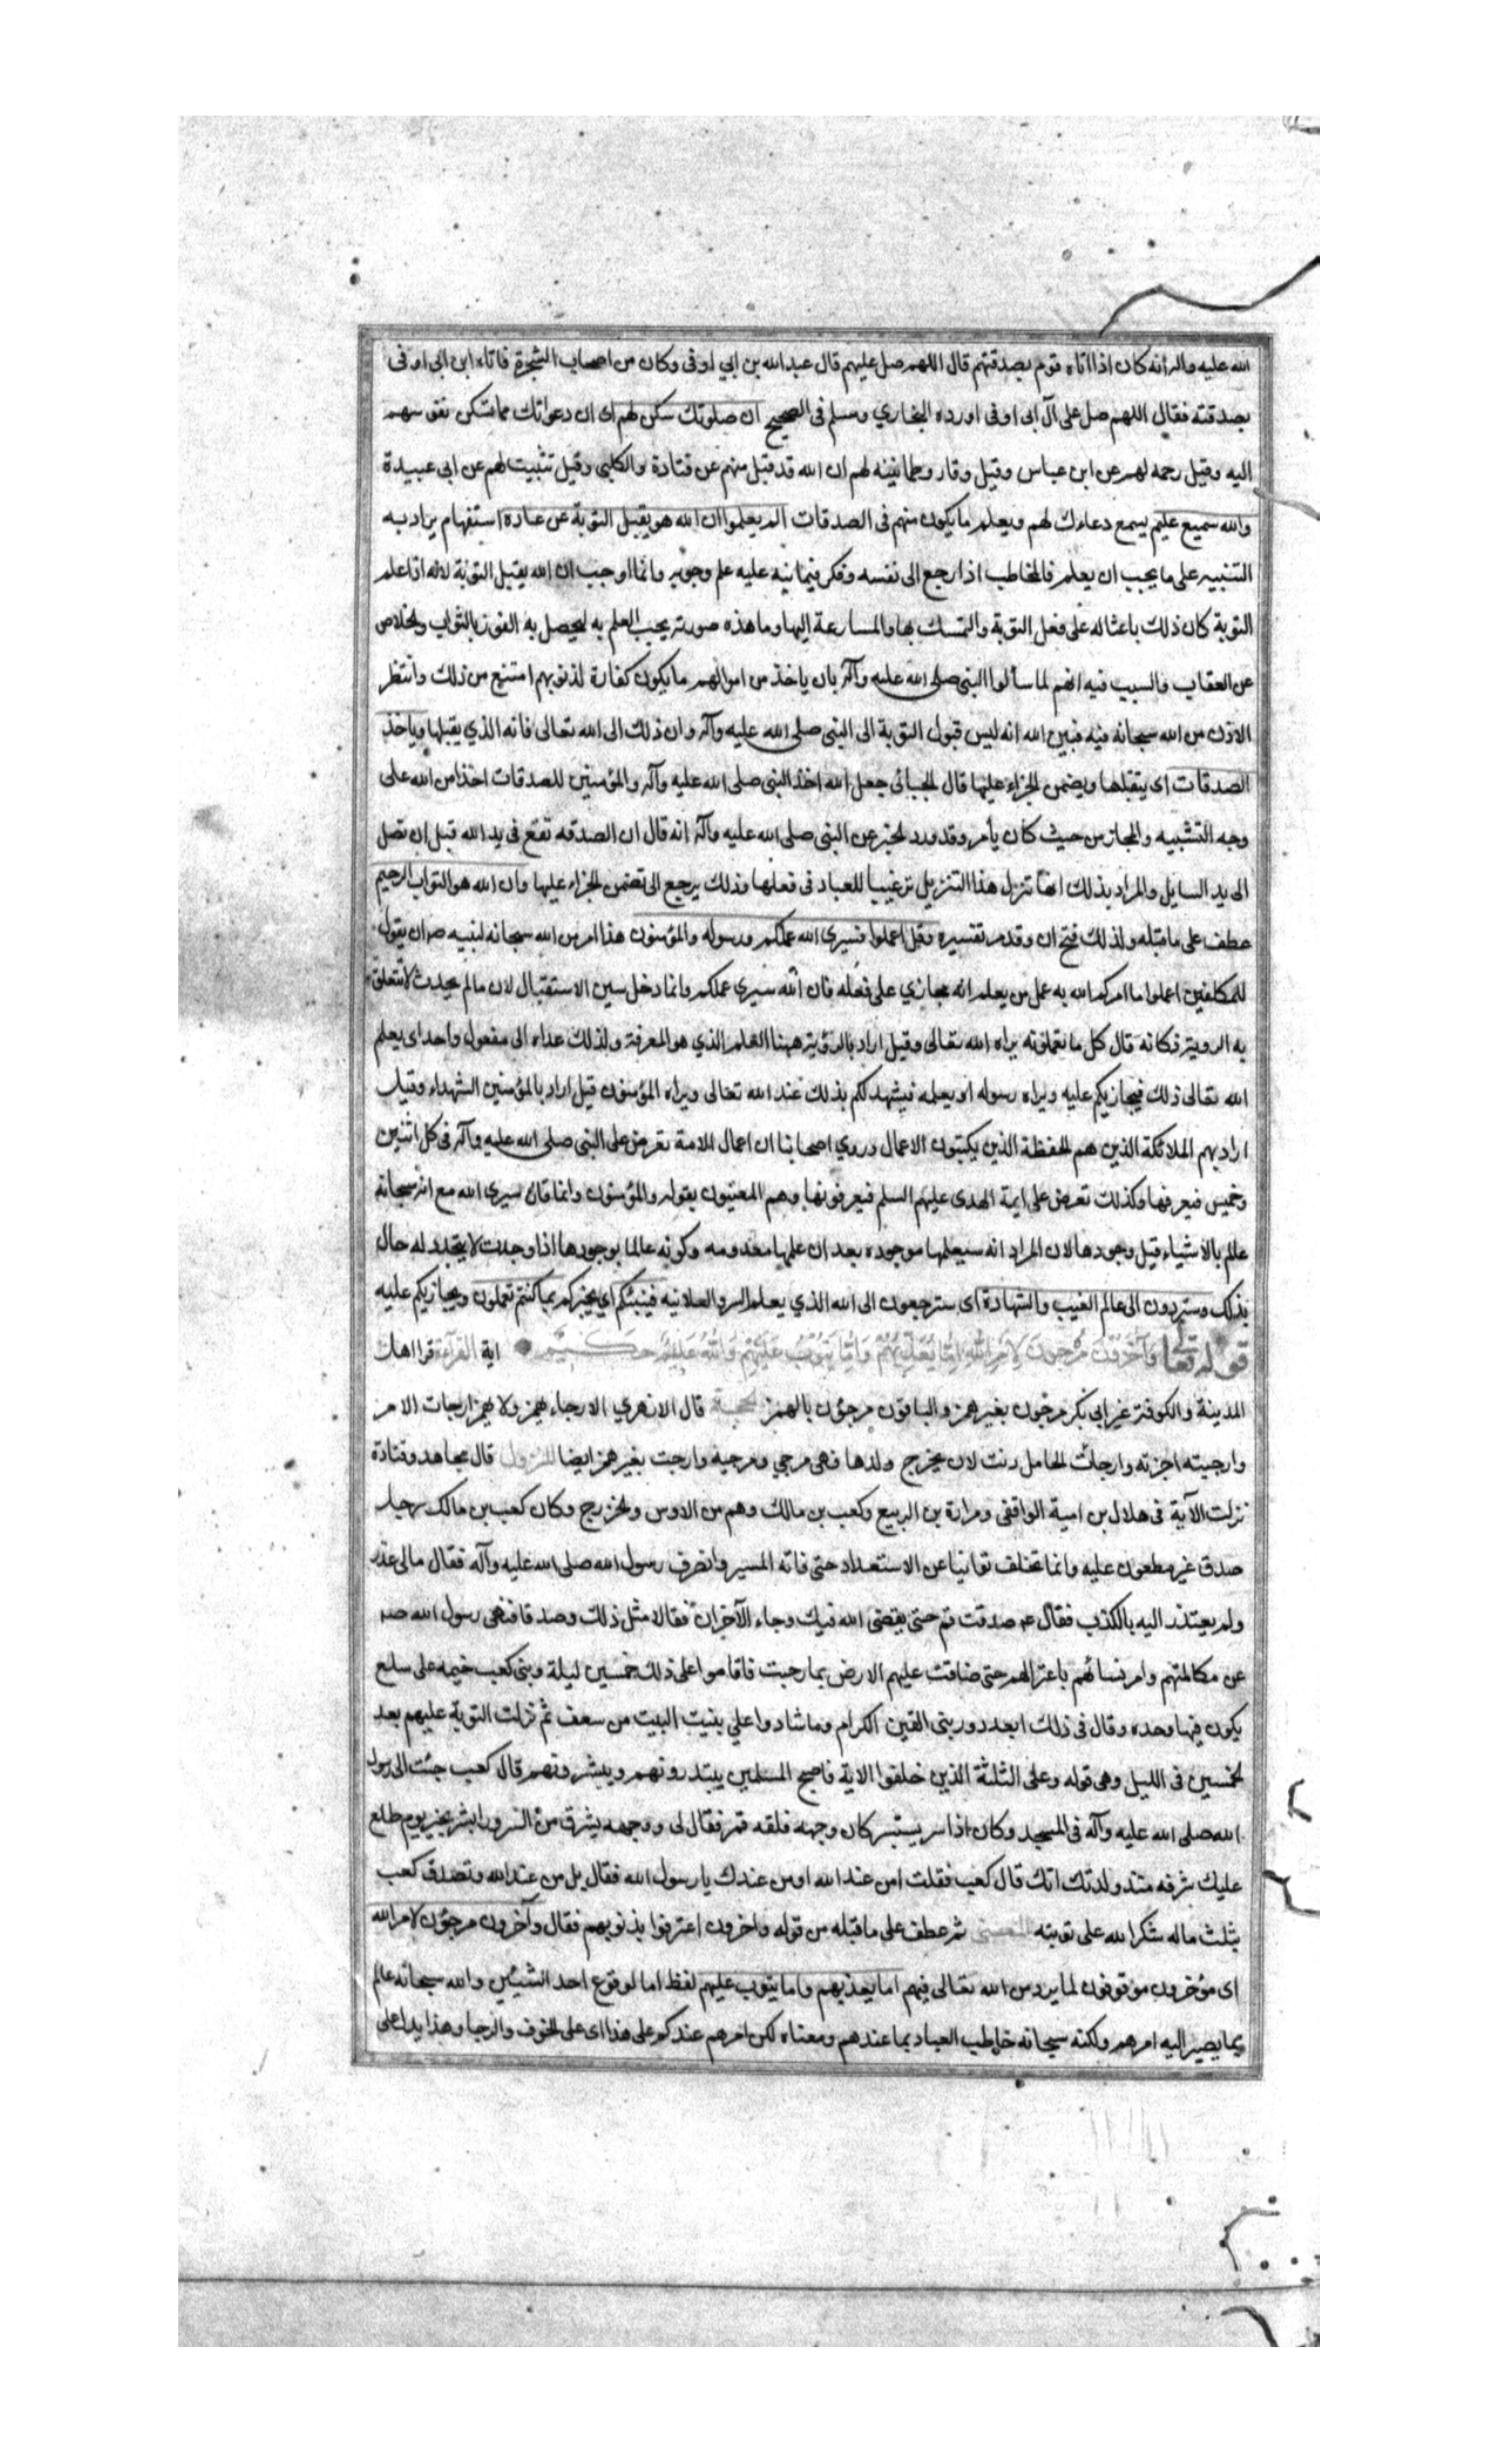 الله عليه واله أنه كان اذا اتاه قوم بصدقتهم قال اللهم صل عليهم قال عبد الله بن ابي اوفى وكان من اصحاب الشجرة فاتاه ابن ابي اوفى
بصدقته فقال اللهم صل على آل ابى اوفى اورده البخاري ومسلم فى الصحيح ان صلوتك سكن لهم اى ان دعواتك مما تسكن نفوسهم
اليه وقيل رحمه لهم عن ابن عباس وقيل وقار وطمانينه لهم ان الله قد قبل منهم عن قتادة والكلبى وقيل تثبيت لهم عن ابى عبيدة
والله سميع عليم يسمع دعاءك لهم ويعلم ما يكون منهم فى الصدقات الم يعلموا ان الله هو يقبل التوبة عن عباده استفهام يراد به
التنبيه على ما يجب ان يعلم فالمخاطب اذا رجع الى نفسه وفكر فيما نبه عليه علم وجوبه وانما اوجب ان الله يقبل التوبة لانه اذا علم
التوبة كان ذلك باعثا له على فعل التوبة والتمسك بها والمسارعة اليها وما هذه صورته يجب العلم به ليحصل به الفوز بالثواب والخلاص
عن العقاب والسبب فيه انهم لما سألوا النبى صلى الله عليه وآله بان ياخذ من اموالهم ما يكون كفارة لذنوبهم امتنع من ذلك وانتظر
الاذن من الله سبحانه فيه فبين الله انه ليس قبول التوبة الى النبى صلى الله عليه وآله وان ذلك الى الله تعالى فانه الذي يقبلها وياخذ
الصدقات اى يتقبلها ويضمن الجزاء عليها قال الجبائى جعل الله اخذ النبى صلى الله عليه وآله والمؤمنين للصدقات اخذا من الله على
وجه التشبيه والمجاز من حيث كان يأمره وقد ورد الخبر عن النبى صلى الله عليه وآله انه قال ان الصدقه تقع فى يد الله قبل ان تصل
الى يد السايل والمراد بذلك انها تنزل هذا التنزيل ترغيبا للعباد فى فعلها وذلك يرجع الى تضمن الجزاء عليها وان الله هو التواب الرحيم
عطف على ما قبله ولذلك فتح ان وقدم تفسيره وقل اعملوا فسيرى الله عملكم ورسوله والمؤمنون هذا امر من الله سبحانه لنبيه ص ان يقول
للمكلفين اعملوا ما امركم الله به عمل من يعلم انه مجازي على فعله فان الله سيرى عملكم وانما دخل سين الاستقبال لان ما لم يحدث لا تتعلق
به الروية فكانه قال كل ما تعملونه يراه الله تعالى وقيل اراد بالرؤية ههنا العلم الذي هو المعرفة ولذلك عداه الى مفعول واحد اى يعلم
الله تعالى ذلك فيجازيكم عليه ويراه رسوله اى يعلمه فيشهد لكم بذلك عند الله تعالى ويراه المؤمنون قيل اراد بالمؤمنين الشهداء وقيل
اراد بهم الملائكة الذين هم الحفظة الذين يكتبون الاعمال وروي اصحابنا ان اعمال الامة تعرض على النبى صلى الله عليه وآله فى كل اثنين
وخميس فيعرفها وكذلك تعرض على ايمة الهدى عليهم السلم فيعرفونها وهم المعنيون بقوله والمؤمنون وانما قال سيرى الله مع انه سبحانه
عالم بالاشياء قبل وجودها لان المراد انه سيعلمها موجوده بعد ان علمها معدومه وكونه عالما بوجودها اذا وجدت لا يتجدد له حال
بذلك وستردون الى عالم الغيب والشهادة اى سترجعون الى الله الذي يعلم السر والعلانيه فينبئكم اي يخبركم بما كنتم تعملون ويجازيكم عليه
قوله تعالى وَآخَرُونَ مُرْجَوْنَ لِأَمْرِ اللهِ إِمَّا يُعَذِّبُهُمْ وَإِمَّا يَتُوبُ عَلَيْهِمْ وَاللهُ عَلِيمٌ حَكِيمٌ اية القرآءة قرا اهل
المدينة والكوفة غير ابى بكر مرجون بغير همز والباقون مرجؤن بالهمز الحجة قال الازهري الارجاء يهمز ولا يهمز ارجات الامر
وارجيته اخرته وارجات الحامل دنت لان يخرج ولدها فهى مرجي ومرجية وارجت بغير همز ايضا النزول قال مجاهد وقتادة
نزلت الآية فى هلال بن امية الواقفى ومرارة بن الربيع وكعب بن مالك وهم من الاوس والخزرج وكان كعب بن مالك رجل
صدق غير مطعون عليه وانما تخلف توانيا عن الاستعداد حتى فاته المسير وانصرف رسول الله صلى الله عليه وآله فقال مالى عذر
ولم يعتذر اليه بالكذب فقال ع صدقت قم حتى يقضى الله فيك وجاء الآخران فقالا مثل ذلك وصدقا فنهى رسول الله ص
عن مكالمتهم وامر نساءهم باعتزالهم حتى ضاقت عليهم الارض بما رحبت فاقاموا على ذلك خمسين ليلة وبنى كعب خيمه على سلع
يكون فيها وحده وقال فى ذلك ابعد دور بنى القين الكرام وما شادوا علي بنيت البيت من سعف ثم نزلت التوبة عليهم بعد
الخمسين فى الليل وهى قوله وعلى الثلثة الذين خلفوا الاية فاصبح المسلمين يبتدرونهم ويبشرونهم قال كعب جئت الى رسول
الله صلى الله عليه وآله فى المسجد وكان اذا سر يستبشر كان وجهه فلقه قمر فقال لى ووجهه يشرق من السرور ابشر بخير يوم طلع
عليك شرفه منذ ولدتك امك قال كعب فقلت امن عند الله او من عندك يا رسول الله فقال بل من عند الله وتصدق كعب
بثلث ماله شكرا لله على توبته المعنى ثم عطف على ما قبله من قوله واخرون اعترفوا بذنوبهم فقال وآخرون مرجؤن لامر الله
اى مؤخرون موقوفون لما يرد من الله تعالى فيهم اما يعذبهم واما يتوب عليهم لفظ اما لوقوع احد الشيئين والله سبحانه عالم
بما يصير اليه امرهم ولكنه سبحانه خاطب العباد بما عندهم ومعناه لكن امرهم عندكم على هذا اى على الخوف والرجا وهذا يدل على